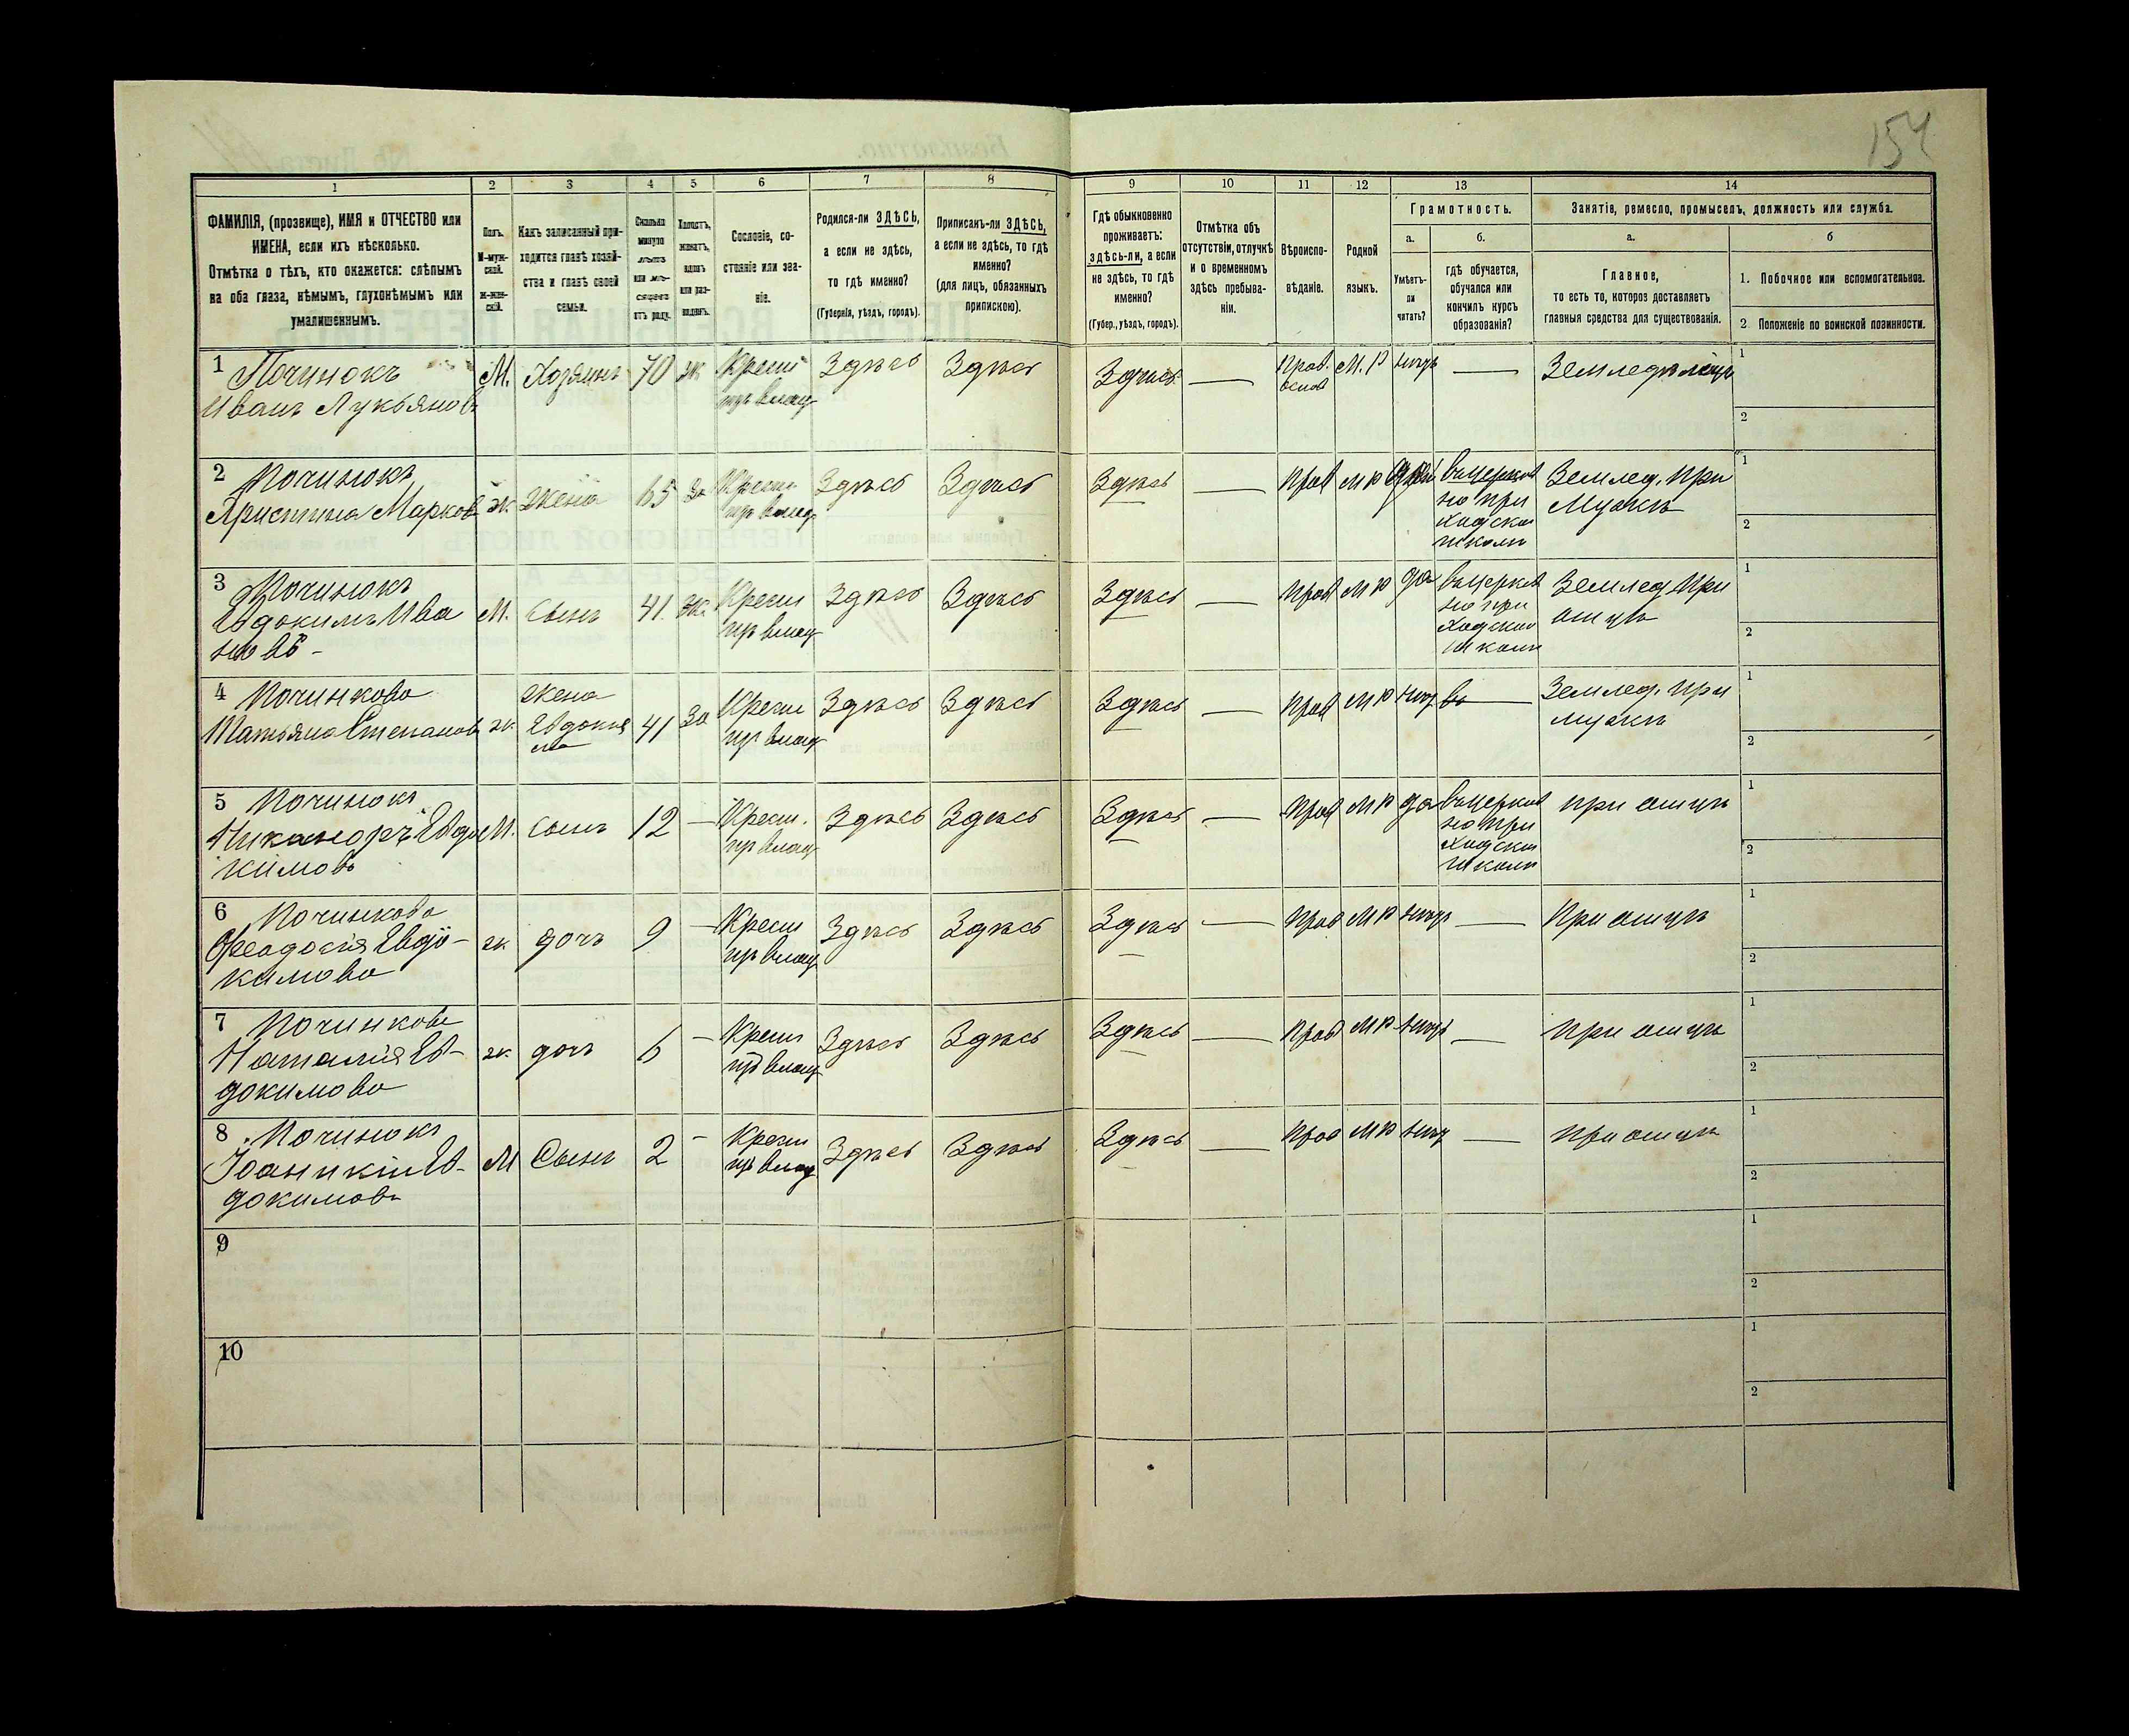 154
1 2 3 4 5 6 7 8 9 10 11 12 13 14
ФАМИЛІЯ, (прозвище), ИМЯ и ОТЧЕСТВО или
ИМЕНА, если ихъ нѣсколько.
Отмѣтка о тѣхъ, кто окажется: слѣпымъ
на оба глаза, нѣмымъ, глухонѣмымъ или
умалишеннымъ.
Полъ.
М-муж-
ской.
Ж-жен-
скій.
Какъ записанный при-
ходится главѣ хозяй-
ства и главѣ своей
семьи.
Сколько
минуло
лѣтъ
или мѣ-
сяцевъ
отъ роду.
Холостъ,
женатъ,
вдовъ
или раз-
веденъ.
Сословіе, со-
стояніе или зва-
ніе.
Родился-ли ЗДѢСЬ,
а если не здѣсь,
то гдѣ именно?
(Губернія, уѣздъ, городъ).
Приписанъ-ли ЗДѢСЬ,
а если не здѣсь, то гдѣ
именно?
(для лицъ, обязанныхъ
припискою).
Гдѣ обыкновенно
проживаетъ:
здѣсь-ли, а если
не здѣсь, то гдѣ
именно?
(Губер., уѣздъ, городъ).
Отмѣтка объ
отсутствіи, отлучкѣ
и о временномъ
здѣсь пребыва-
ніи.
Вѣроиспо-
вѣданіе.
Родной
языкъ.
Грамотность.
а.
Умѣетъ-
ли
читать?
б.
гдѣ обучается,
обучался или
кончилъ курсъ
образованія?
Занятіе, ремесло, промыселъ, должность или служба.
а.
Главное,
то есть то, которое доставляетъ
главныя средства для существованія.
б
1. Побочное или вспомогательное.
2 Положеніе по воинской повинности.
1 Починокъ
Иванъ Лукьяновъ
М. Хозяинъ 70 ж
Крест
Здѣсь Здѣсь Здѣсь —
Прав.
М. Р нѣтъ — Земледѣлецъ
1
2
2 Починокъ
Христина Марков
ж жена 65 За
Крест
Здѣсь Здѣсь Здѣсь —
Прав М Р
въ церков
но при
ходской
школѣ
Землед. при
Мужѣ
1
2
3 Починокъ
Евдокимъ Ива
новъ -
М. Сынъ 41 ж.
Крест
Здѣсь Здѣсь Здѣсь —
Прав М Р да
въ церков
но при
ходской
школѣ
Землед при
отцѣ
1
2
4 Починкова
Татьяна Степанов
ж
жена
Евдокима
41 За
Крест
Здѣсь Здѣсь Здѣсь —
Прав М Р нѣт —
Землед. при
мужѣ
1
2
5 Починокъ
Никаноръ Евдо
кимовъ
М. Сынъ 12 —
Крест.
Здѣсь Здѣсь Здѣсь —
Прав М Р да
въ церков
но при
ходской
школѣ
при отцѣ
1
2
6 Починкова
Феодосія Евдо-
кимова
ж дочь 9 —
Крест
Здѣсь Здѣсь Здѣсь —
Прав М Р нѣтъ — При отцѣ
1
2
7 Починкова
Наталія Ев-
докимова
ж дочь 6 —
Крест
Здѣсь Здѣсь Здѣсь —
Прав М Р нѣтъ — При отцѣ
1
2
8 Починокъ
Іоаникій Ев-
докимовъ
М Сынъ 2 -
Крест
Здѣсь Здѣсь Здѣсь —
Прав М Р нѣт — при отцѣ
1
2
9
1
2
10
1
2